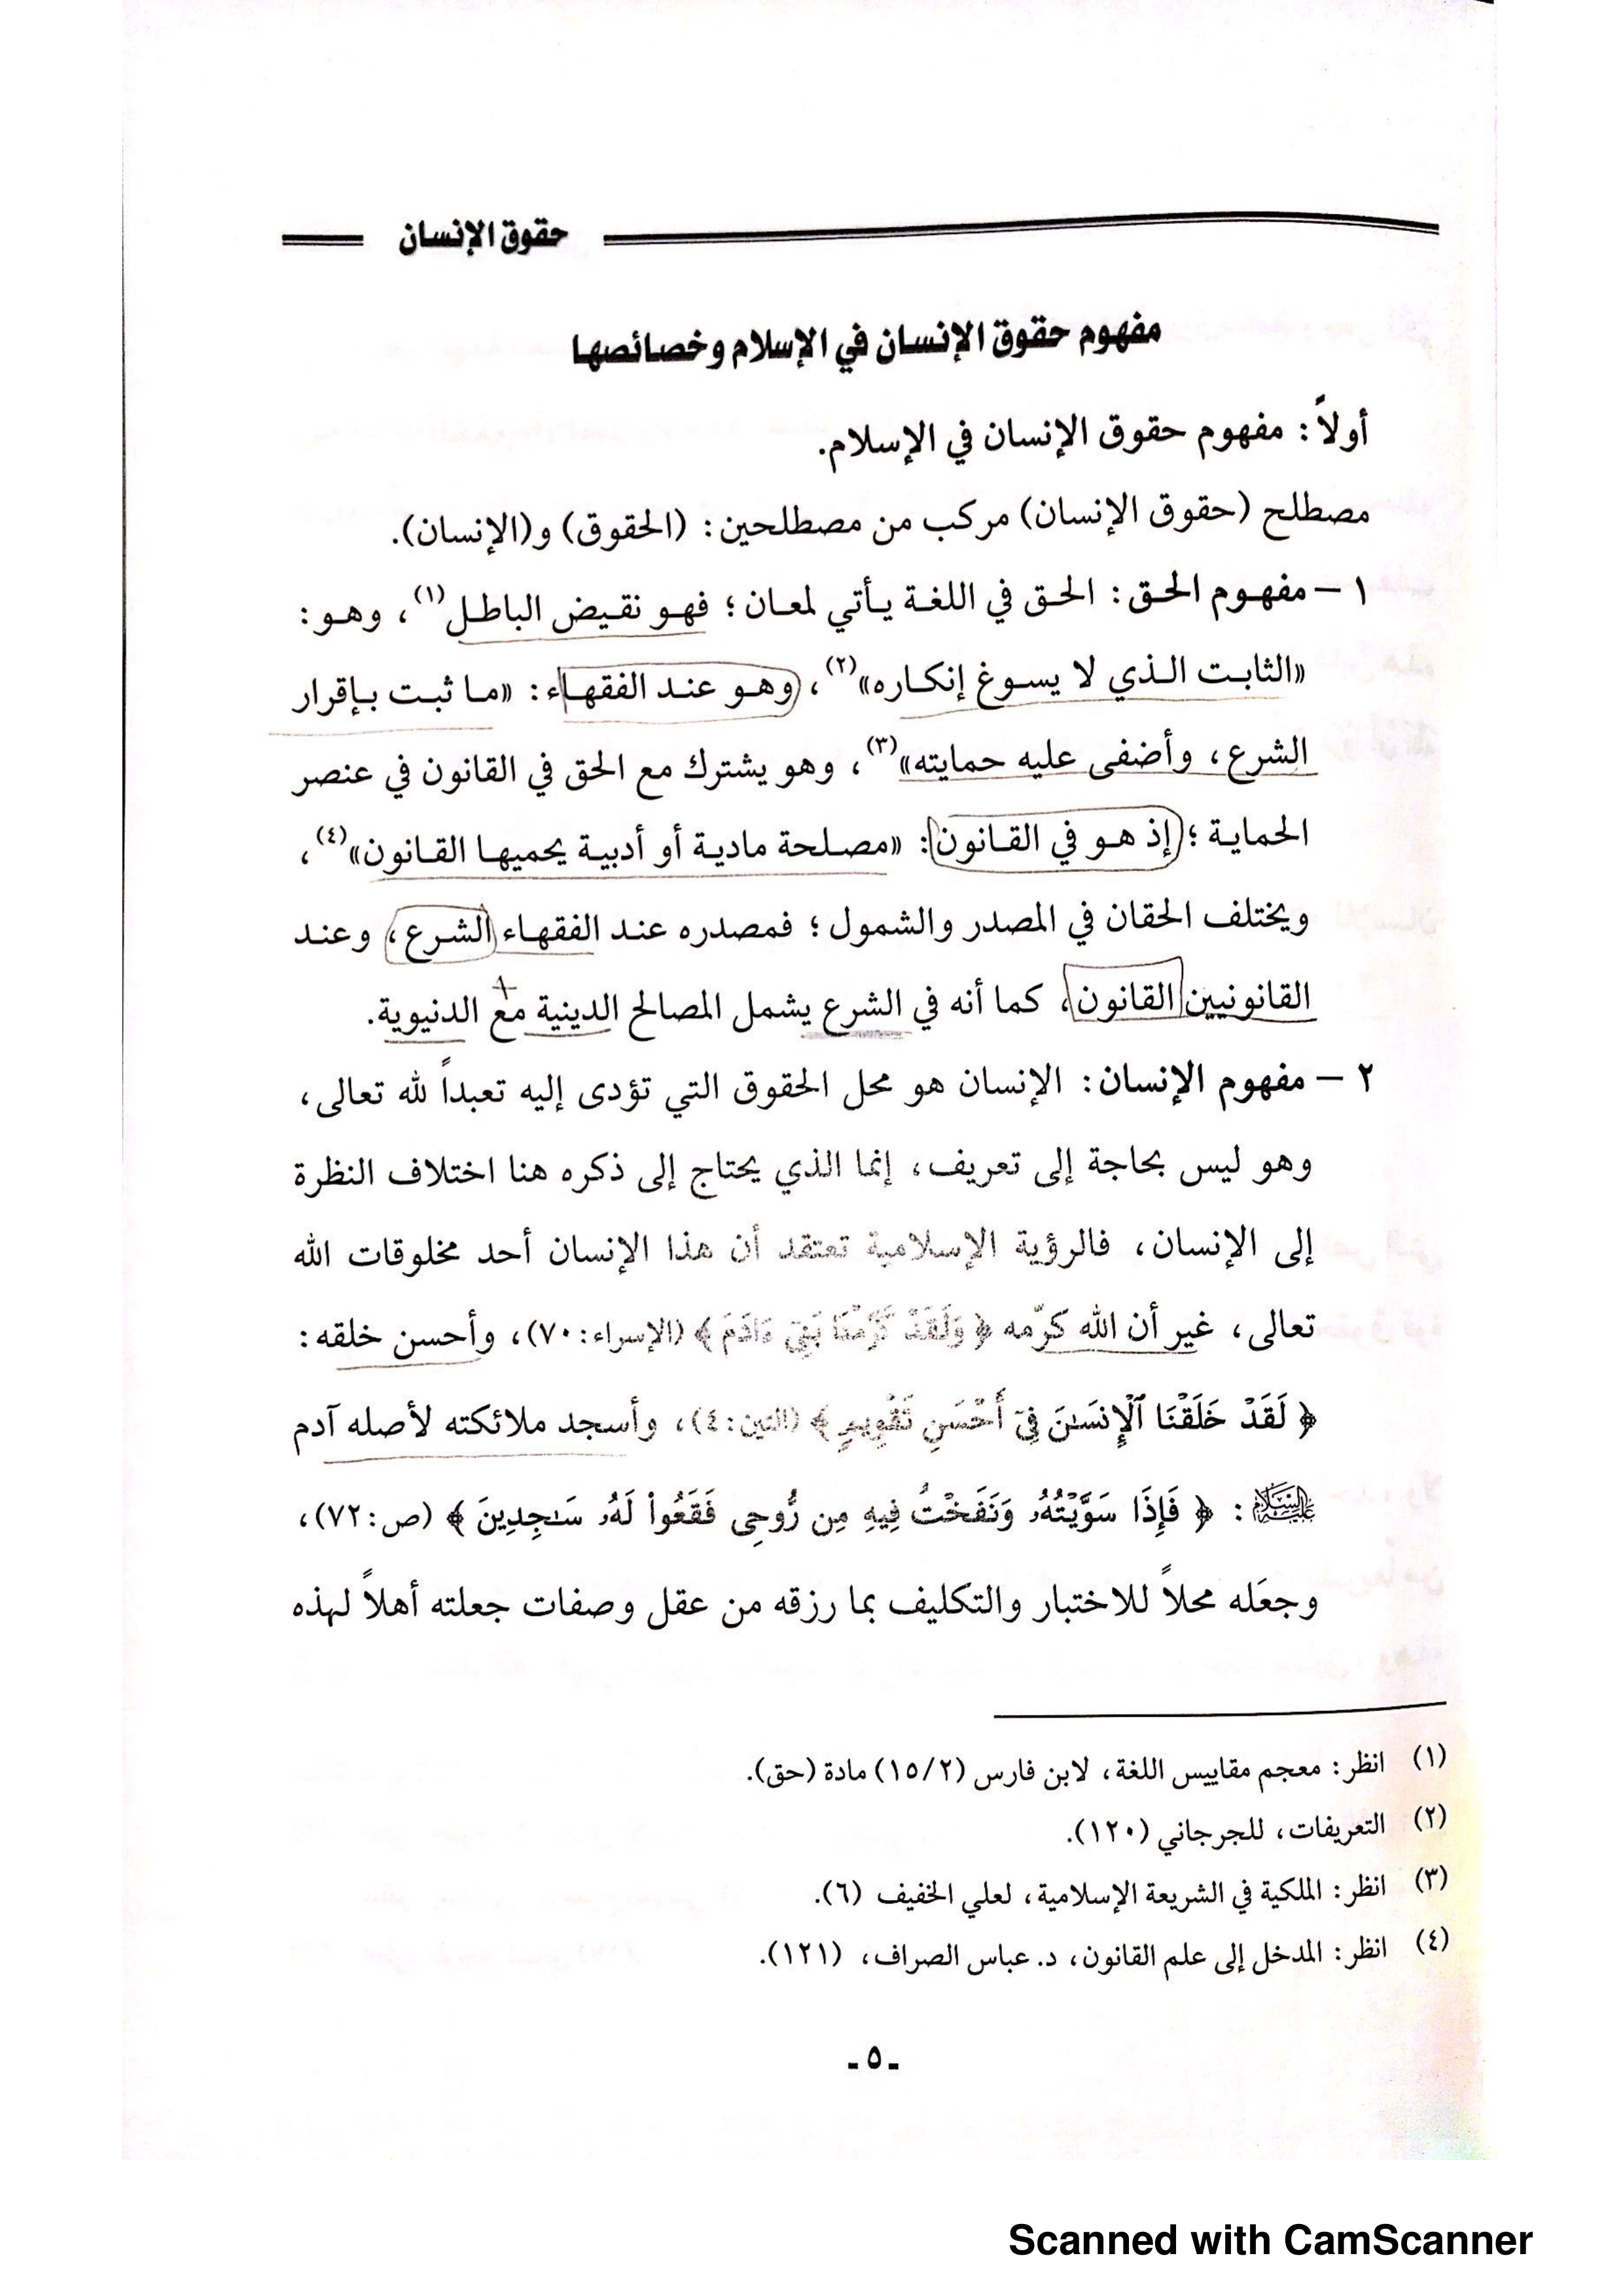 حقوق الإنسان
مفهوم حقوق الإنسان في الإسلام وخصائصها
أولاً: مفهوم حقوق الإنسان في الإسلام.
مصطلح (حقوق الإنسان) مركب من مصطلحين: (الحقوق) و(الإنسان).
١ – مفهوم الحق: الحق في اللغة يأتي لمعان؛ فهو نقيض الباطل(١)، وهو:
«الثابت الذي لا يسوغ إنكاره»(٢)، وهو عند الفقهاء: «ما ثبت بإقرار
الشرع، وأضفى عليه حمايته»(٣)، وهو يشترك مع الحق في القانون في عنصر
الحماية؛ إذ هو في القانون: «مصلحة مادية أو أدبية يحميها القانون»(٤)،
ويختلف الحقان في المصدر والشمول؛ فمصدره عند الفقهاء الشرع، وعند
القانونيين القانون، كما أنه في الشرع يشمل المصالح الدينية مع الدنيوية.
٢ – مفهوم الإنسان: الإنسان هو محل الحقوق التي تؤدى إليه تعبداً لله تعالى،
وهو ليس بحاجة إلى تعريف، إنما الذي يحتاج إلى ذكره هنا اختلاف النظرة
إلى الإنسان، فالرؤية الإسلامية تعتقد أن هذا الإنسان أحد مخلوقات الله
تعالى، غير أن الله كرّمه ﴿ وَلَقَدْ كَرَّمْنَا بَنِىٓ ءَادَمَ ﴾ (الإسراء: ٧٠)، وأحسن خلقه:
﴿ لَقَدْ خَلَقْنَا ٱلْإِنسَٰنَ فِىٓ أَحْسَنِ تَقْوِيمٍ ﴾ (التين: ٤)، وأسجد ملائكته لأصله آدم
عليه السلام: ﴿ فَإِذَا سَوَّيْتُهُۥ وَنَفَخْتُ فِيهِ مِن رُّوحِى فَقَعُوا۟ لَهُۥ سَٰجِدِينَ ﴾ (ص: ٧٢)،
وجعَله محلاً للاختبار والتكليف بما رزقه من عقل وصفات جعلته أهلاً لهذه
(١) انظر: معجم مقاييس اللغة، لابن فارس (١٥/٢) مادة (حق).
(٢) التعريفات، للجرجاني (١٢٠).
(٣) انظر: الملكية في الشريعة الإسلامية، لعلي الخفيف (٦).
(٤) انظر: المدخل إلى علم القانون، د. عباس الصراف، (١٢١).
ـ ٥ ـ
Scanned with CamScanner